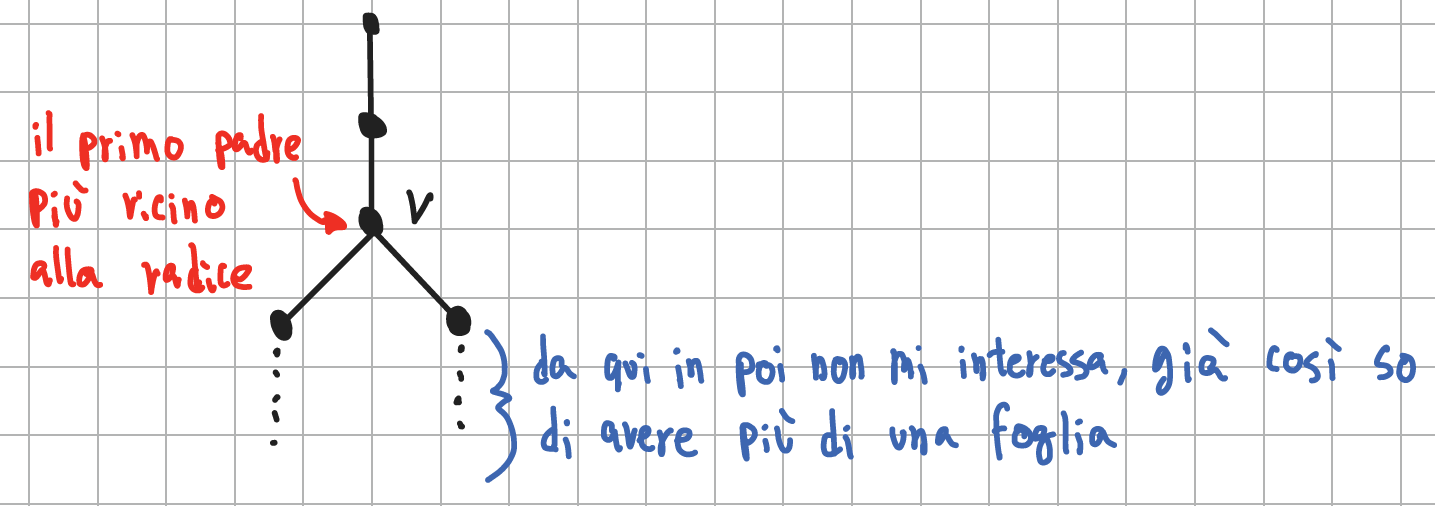 il primo padre
più vicino
alla radice
V
da qui in poi non mi interessa, già così so
di avere più di una foglia